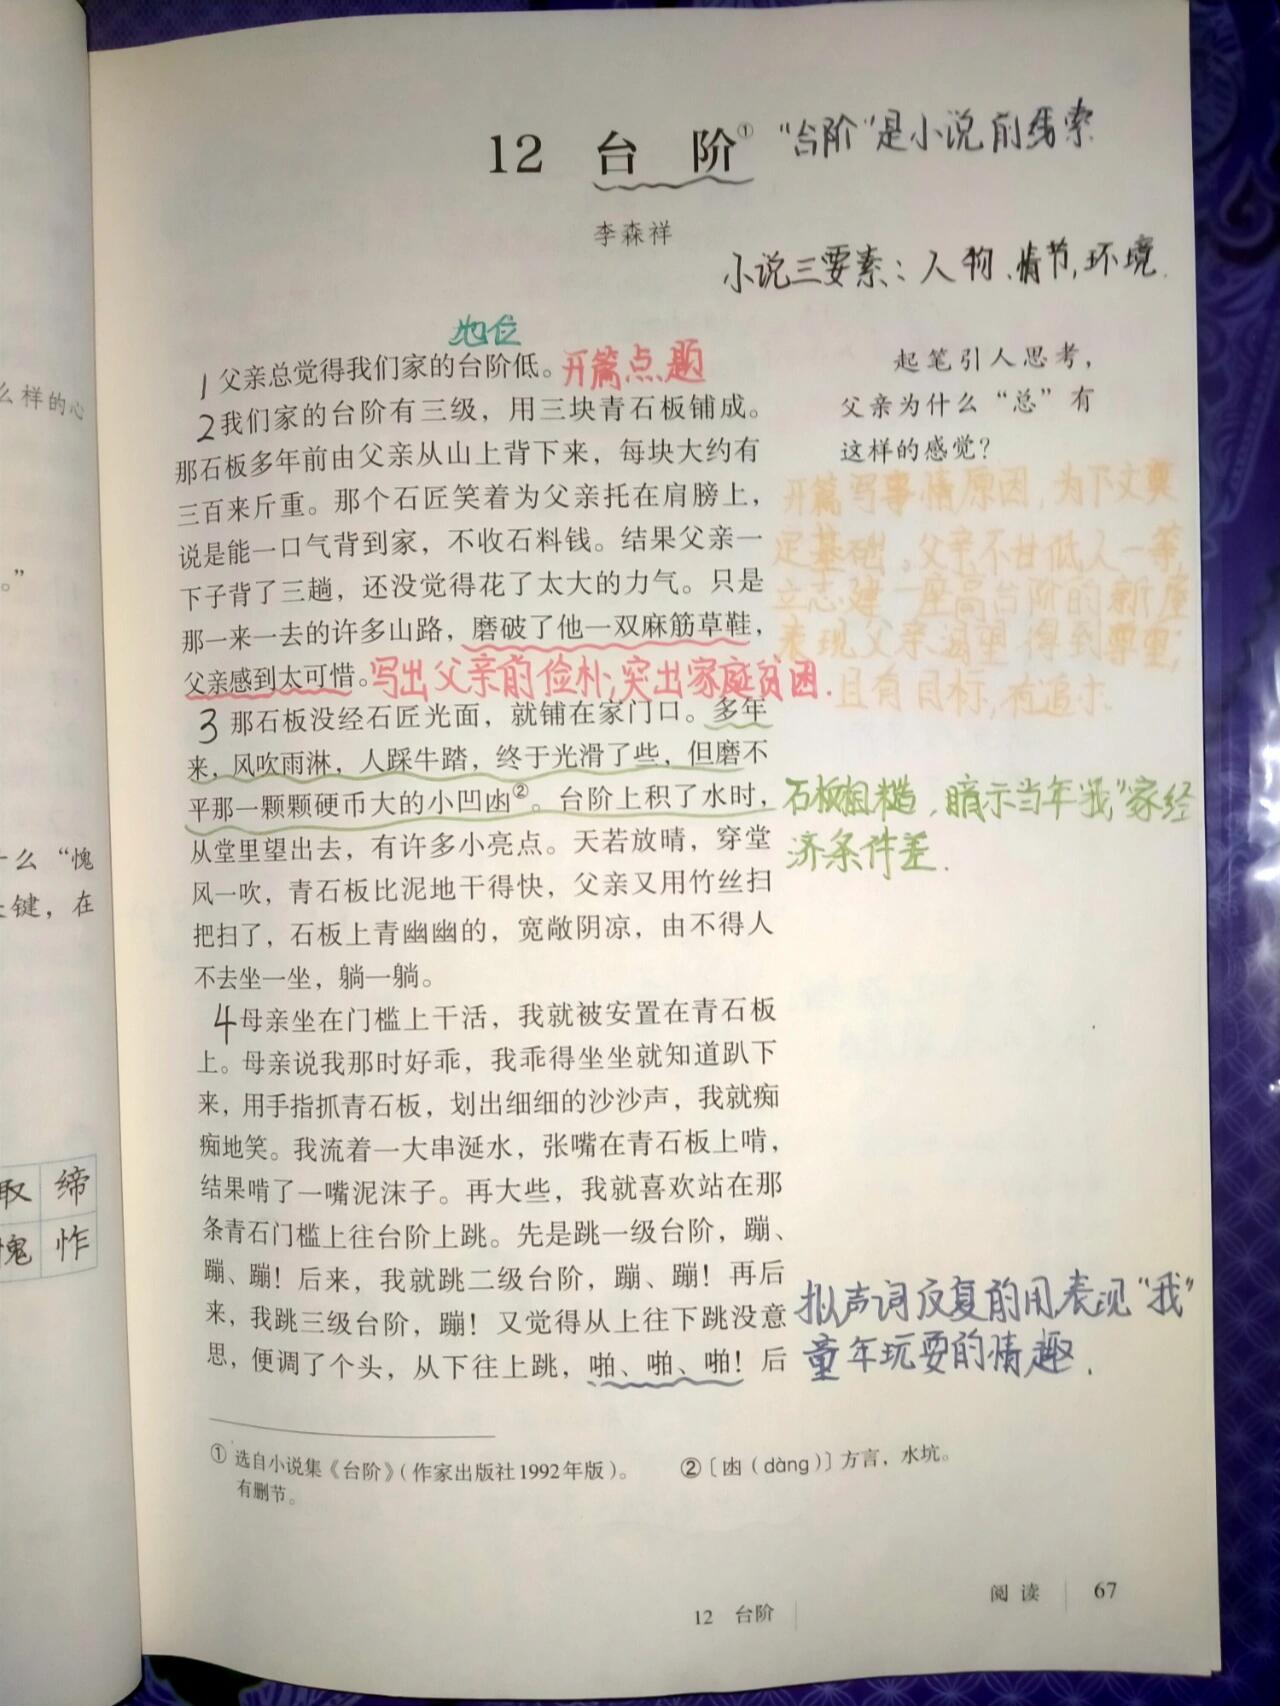 么样的心
。”
什么“愧
关键，在
取 缔
愧 怍
12 台 阶① “台阶”是小说的线索
李森祥
小说三要素：人物、情节，环境.
地位
1父亲总觉得我们家的台阶低。开篇点题
起笔引人思考，
父亲为什么“总”有
这样的感觉？
2我们家的台阶有三级，用三块青石板铺成。
那石板多年前由父亲从山上背下来，每块大约有
三百来斤重。那个石匠笑着为父亲托在肩膀上，
说是能一口气背到家，不收石料钱。结果父亲一
下子背了三趟，还没觉得花了太大的力气。只是
那一来一去的许多山路，磨破了他一双麻筋草鞋，
父亲感到太可惜。写出父亲的俭朴；突出家庭贫困.
开篇写事情原因，为下文奠
定基础，父亲不甘低人一等，
立志建一座高台阶的新屋
表现父亲渴望得到尊重；
且有目标，有追求.
3 那石板没经石匠光面，就铺在家门口。多年
来，风吹雨淋，人踩牛踏，终于光滑了些，但磨不
平那一颗颗硬币大的小凹凼②。台阶上积了水时，
从堂里望出去，有许多小亮点。天若放晴，穿堂
风一吹，青石板比泥地干得快，父亲又用竹丝扫
把扫了，石板上青幽幽的，宽敞阴凉，由不得人
不去坐一坐，躺一躺。
石板粗糙，暗示当年“我”家经
济条件差.
4母亲坐在门槛上干活，我就被安置在青石板
上。母亲说我那时好乖，我乖得坐坐就知道趴下
来，用手指抓青石板，划出细细的沙沙声，我就痴
痴地笑。我流着一大串涎水，张嘴在青石板上啃，
结果啃了一嘴泥沫子。再大些，我就喜欢站在那
条青石门槛上往台阶上跳。先是跳一级台阶，蹦、
蹦、蹦！后来，我就跳二级台阶，蹦、蹦！再后
来，我跳三级台阶，蹦！又觉得从上往下跳没意
思，便调了个头，从下往上跳，啪、啪、啪！后
拟声词反复的用表现“我”
童年玩耍的情趣.
① 选自小说集《台阶》（作家出版社1992年版）。
有删节。
②〔凼（dàng）〕方言，水坑。
阅读 67
12 台阶